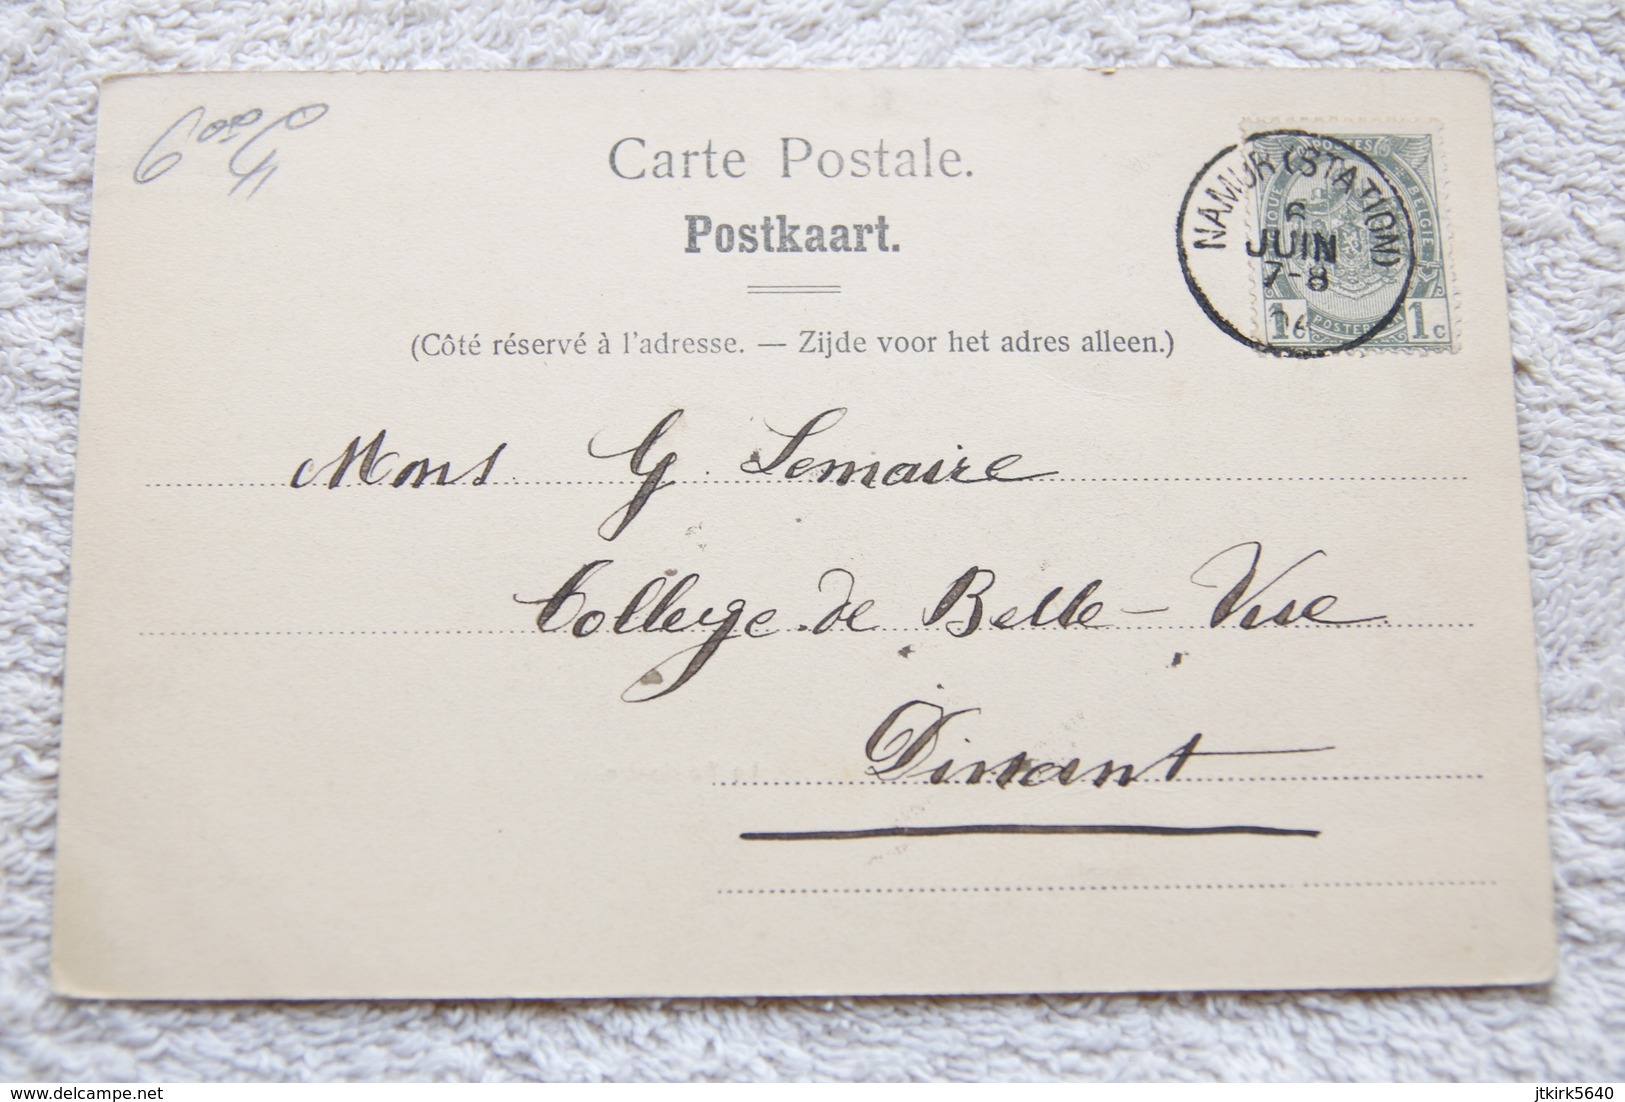 Carte Postale.
Postkaart.
(Côté réservé à l'adresse. — Zijde voor het adres alleen.)
NAMUR (STATION)
6
JUIN
7-8
06
POSTES
BELGIE
POSTERIJEN
1 1c
Mons G. Lemaire
College de Belle-Vue
Dinant
delcampe.net
jtkirk5640